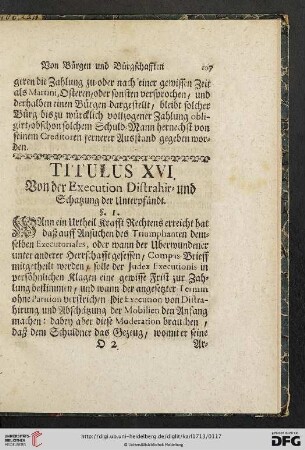 Von Bürgen und Bürgschafften 107
geren die Zahlung zu oder nach einer gewissen Zeit
als Martini, Osteren, oder sonsten versprochen, und
derhalben einen Bürgen dargestellt, bleibt solcher
Bürg biß zu würcklich vollzogener Zahlung obli-
girt, obschon solchem Schuld-Mann hernechst von
seinem Creditoren fernerer Ausstand gegeben wor-
den.
TITULUS XVI.
Von der Execution Distrahir- und
Schatzung der Unterpfändt.
§. 1.
WAnn ein Urtheil Krafft Rechtens erreicht hat
daß auff Ansuchen des Triumphanten dem-
selben Executoriales, oder wann der Überwundener
unter anderer Herrschafft gesessen, Compas-Brieff
mitgetheilt worden, solle der Judex Executionis in
persöhnlichen Klagen eine gewisse Frist zur Zah-
lung bestimmen, und wann der angesetzter Termin
ohne Parition verstrichen die Execution von Distra-
hirung und Abschätzung der Mobilien den Anfang
machen: dabey aber diese Moderation brauchen,
daß dem Schuldner das Gezeug, womit er seine
O 2 Ar-
UNIVERSITÄTS-
BIBLIOTHEK
HEIDELBERG
http://digi.ub.uni-heidelberg.de/diglit/kurl1711/0117
Gefördert durch die
DFG